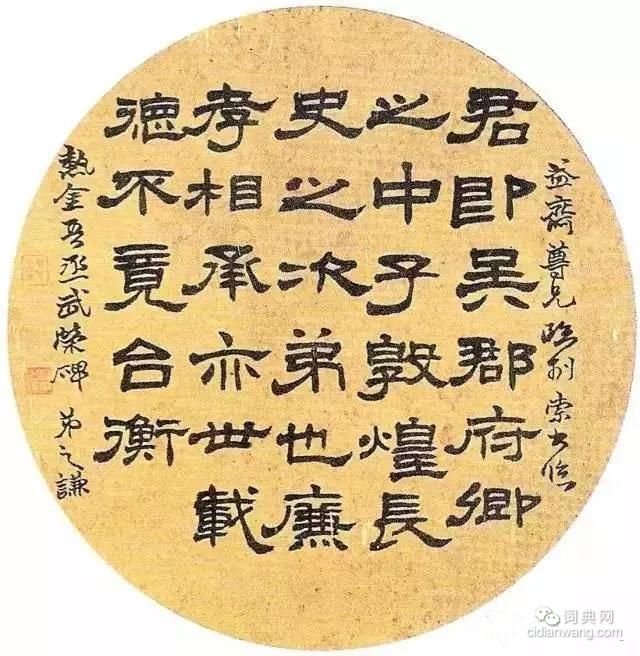 益齋尊兄臨別索書臨
君即吳郡府卿
之中子敦煌長
史之次弟也廉
孝相承亦世載
德不竟台衡
執金吾丞武榮碑 弟之謙
词典网
cidianwang.com